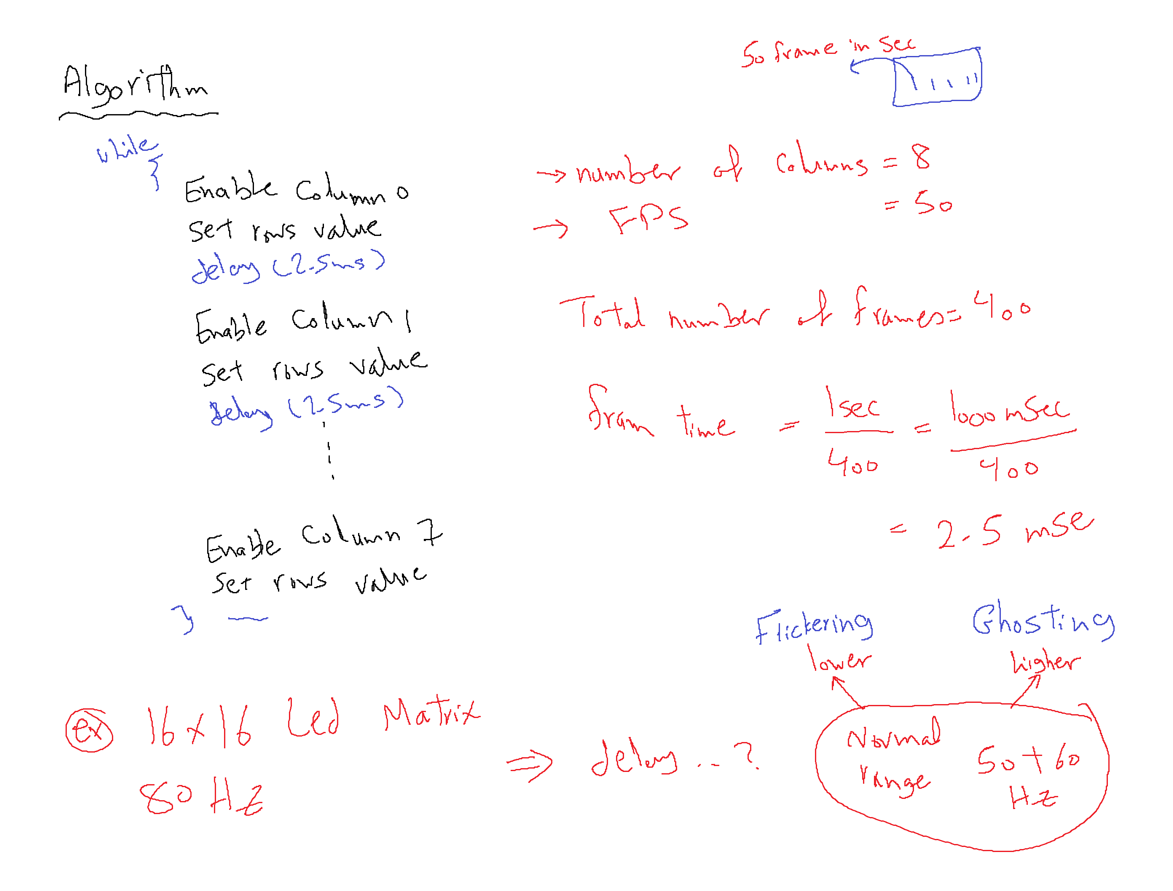 Algorithm
while
{
Enable Column 0
Set rows value
delay (2.5ms)
Enable Column 1
Set rows value
delay (2.5ms)
Enable Column 7
Set rows value
}
50 frame in sec
→ number of Columns = 8
→ FPS = 50
Total number of frames = 400
fram time = 1sec / 400 = 1000 mSec / 400
= 2.5 mse
Flickering Ghosting
lower higher
Normal range 50 + 60 Hz
ex 16 x 16 Led Matrix
80 Hz
⇒ delay .. ?